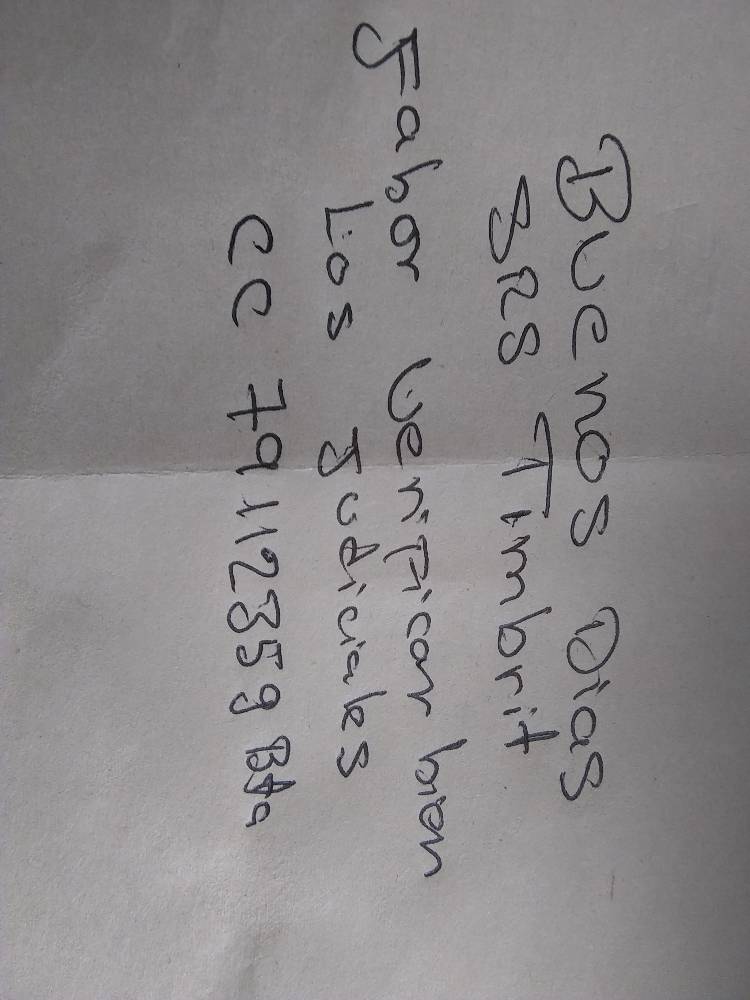 Buenos Dias
SRS Timbrit
Fabor verificar bien
Los Judiciales
CC 79112359 Bta